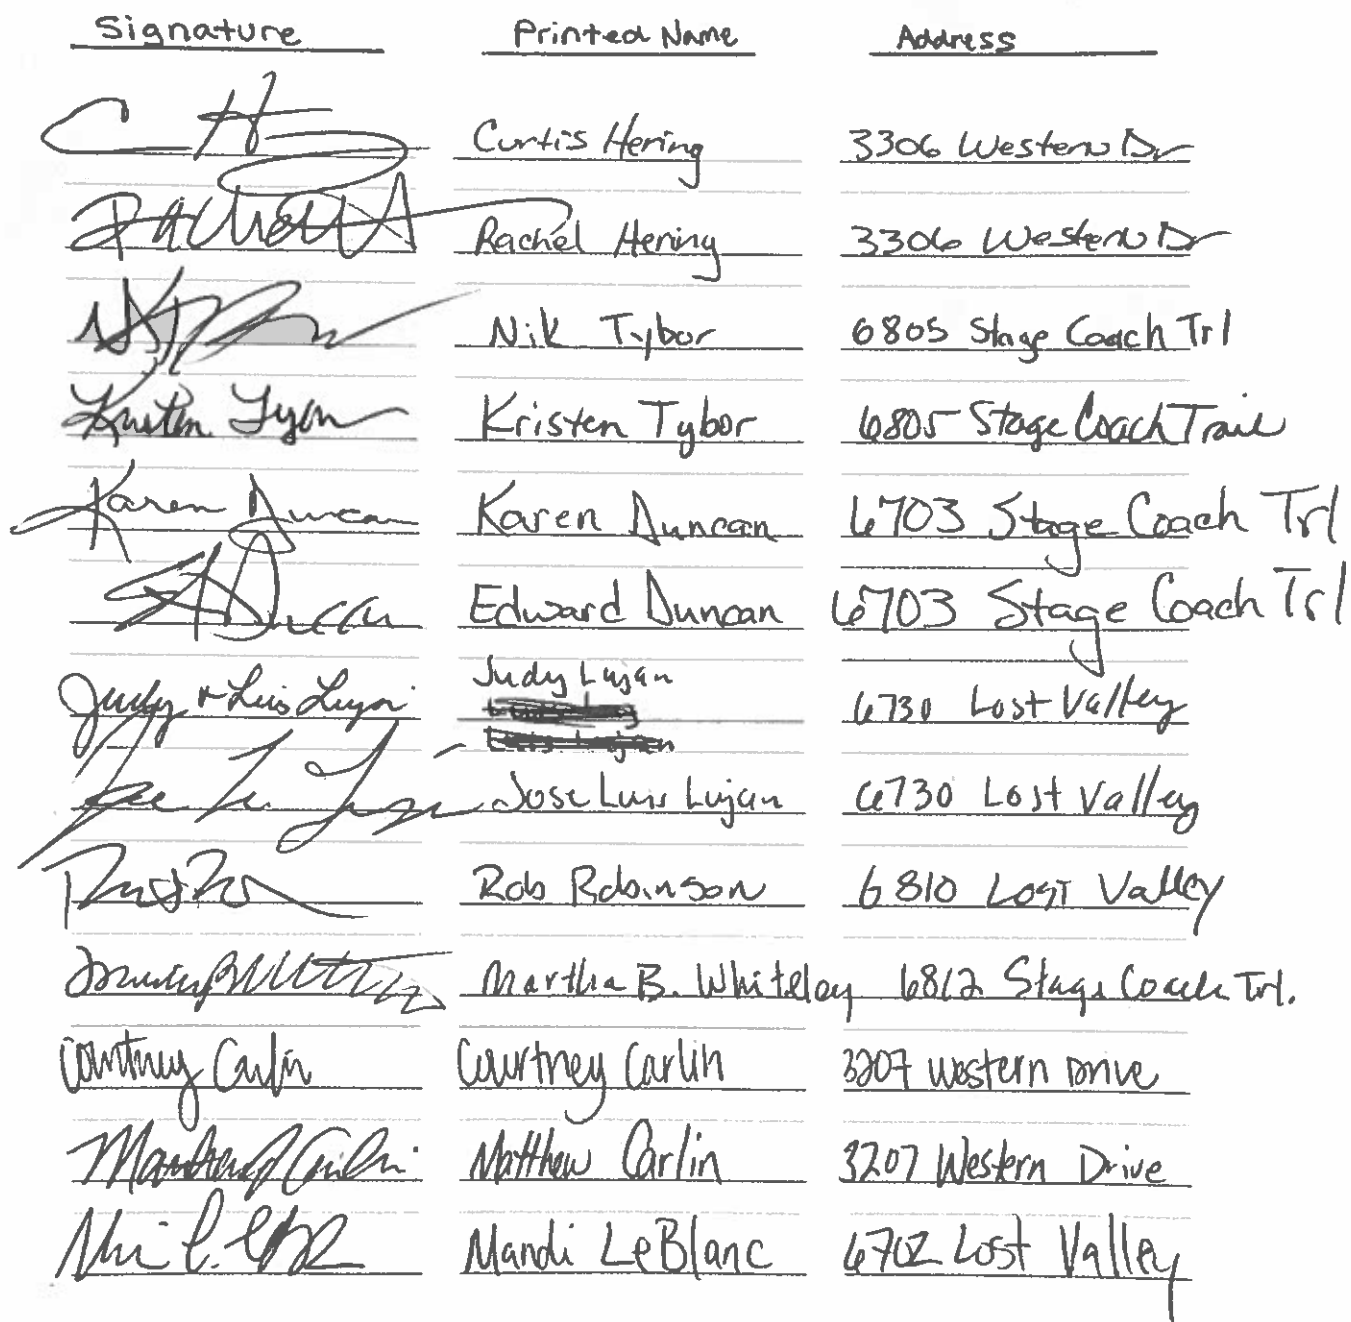 Signature Printed Name Address
Curtis Hering 3306 Western Dr
Rachel Hering 3306 Western Dr
Nik Tybor 6805 Stage Coach Trl
Kristen Tybor Kristen Tybor 6805 Stage Coach Trail
Karen Duncan Karen Duncan 6703 Stage Coach Trl
Duncan Edward Duncan 6703 Stage Coach Trl
Judy Lujan
Judy & Luis Lujan 6730 Lost Valley
Jose Luis Lujan 6730 Lost Valley
Rob Robinson 6810 Lost Valley
Martha B. Whiteley 6812 Stage Coach Trl.
Courtney Carlin Courtney Carlin 3207 Western Drive
Matthew Carlin 3207 Western Drive
Mandi LeBlanc 6702 Lost Valley